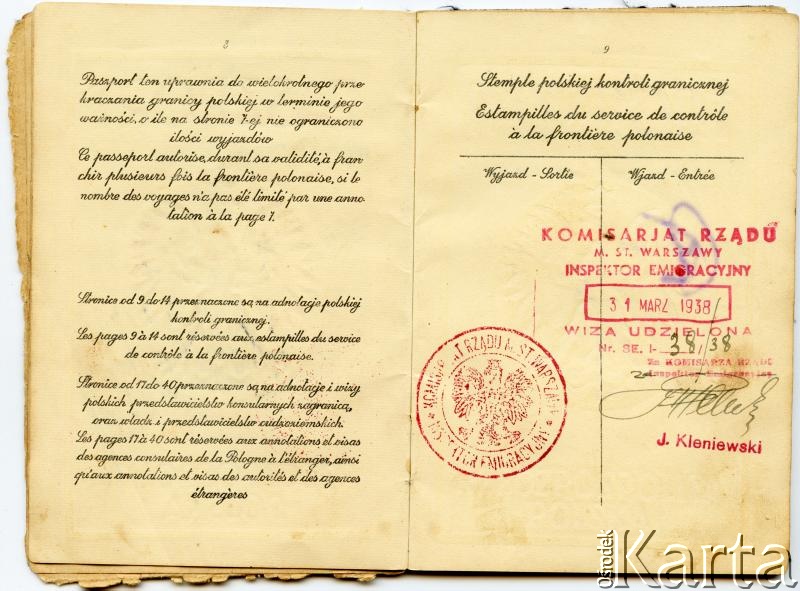 8
Paszport ten uprawnia do wielokrotnego prze-
kraczania granicy polskiej w terminie jego
ważności, o ile na stronie 7-ej nie ograniczono
ilości wyjazdów
Ce passeport autorise, durant sa validité, à fran-
chir plusieurs fois la frontière polonaise, si le
nombre des voyages n'a pas été limité par une anno-
tation à la page 7.
Stronice od 9 do 14 przeznaczone są na adnotacje polskiej
kontroli granicznej.
Les pages 9 à 14 sont réservées aux estampilles du service
de contrôle à la frontière polonaise.
Stronice od 17 do 40 przeznaczone są na adnotacje i wizy
polskich przedstawicielstw konsularnych zagranicą,
oraz władz i przedstawicielstw cudzoziemskich.
Les pages 17 à 40 sont réservées aux annotations et visas
des agences consulaires de la Pologne à l'étranger, ainsi
qu'aux annotations et visas des autorités et des agences
étrangères
9
Stemple polskiej kontroli granicznej
Estampilles du service de contrôle
à la frontière polonaise
Wyjazd - Sortie
Wjazd - Entrée
KOMISARJAT RZĄDU
M. ST. WARSZAWY
INSPEKTOR EMIGRACYJNY
31 MARZ 1938
WIZA UDZIELONA
Nr. SE. I- 38/38
Za KOMISARZA RZĄDU
Inspektor Emigracyjny
J. Kleniewski
KOMISARJAT RZĄDU M. ST. WARSZAWY
INSPEKTOR EMIGRACYJNY
Ośrodek
Karta